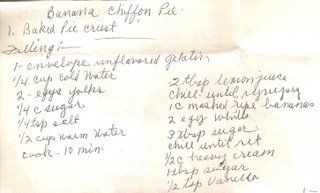 Banana Chiffon Pie
1. Baked Pie Crust
Filling:-
1- envelope unflavored gelatin
1/4 cup cold water
2- eggs yolks
1/4 c sugar
1/4 tsp salt
1/2 cup warm water
cook - 10 min.
2 tbsp lemon juice
chill until syrupy
1 C mashed ripe bananas
2 egg whites
3 tbsp sugar
chill until set
1/2 c heavy cream
1 tbsp sugar
1/2 tsp Vanilla